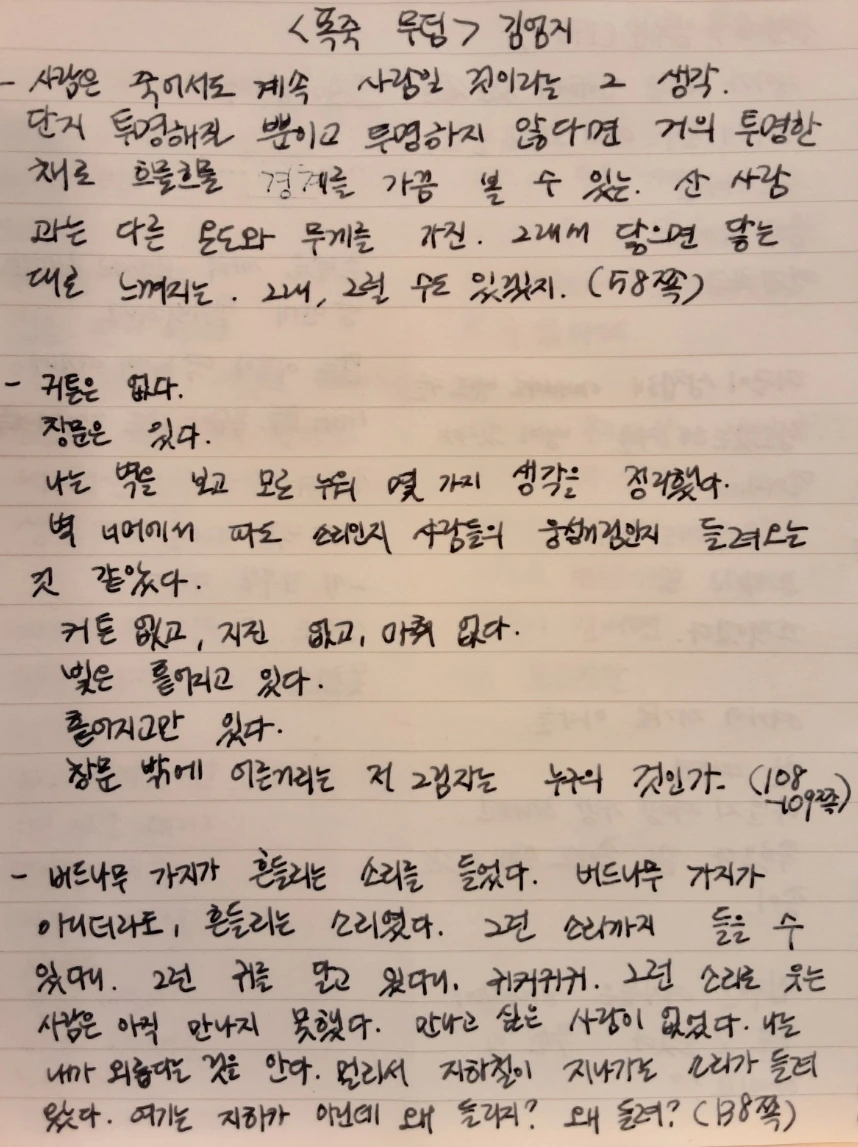 <폭죽 무덤> 김엄지
- 사람은 죽어서도 계속 사람일 것이라는 그 생각.
단지 투명해질 뿐이고 투명하지 않다면 거의 투명한
채로 흐물흐물 경계를 가끔 볼 수 있는. 산 사람
과는 다른 온도와 무게를 가진. 그래서 닿으면 닿는
대로 느껴지는. 그래, 그럴 수도 있겠지. (58쪽)
- 커튼은 없다.
창문은 있다.
나는 벽을 보고 모로 누워 몇 가지 생각을 정리했다.
벽 너머에서 파도 소리인지 사람들의 웅성거림인지 들려오는
것 같았다.
커튼 없고, 지진 없고, 마취 없다.
빛은 흩어지고 있다.
흩어지고만 있다.
창문 밖에 어른거리는 저 그림자는 누구의 것인가. (108
-109쪽)
- 버드나무 가지가 흔들리는 소리를 들었다. 버드나무 가지가
아니더라도, 흔들리는 소리였다. 그런 소리까지 들을 수
있다니. 그런 귀를 달고 있다니. 귀커귀귀. 그런 소리로 웃는
사람은 아직 만나지 못했다. 만나고 싶은 사람이 없었다. 나는
내가 외롭다는 것을 안다. 멀리서 지하철이 지나가는 소리가 들려
왔다. 여기는 지하가 아닌데 왜 들리지? 왜 들려? (138쪽)